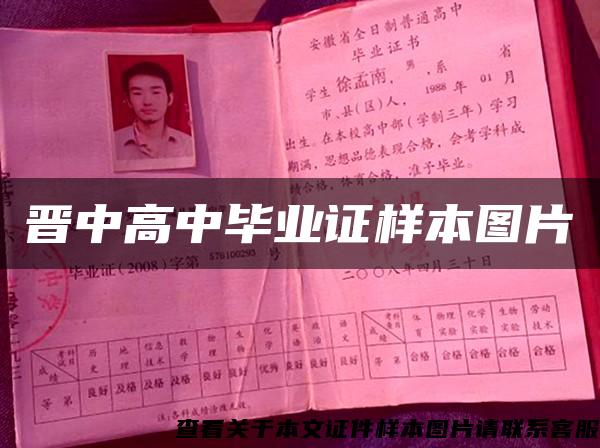 安徽省全日制普通高中
毕业证书
学生 徐孟南，男，系 省
市、县（区）人，1988年01月
出生。在本校高中部（学制三年）学习
期满，思想品德表现合格，会考学科成
绩合格，体育合格，准予毕业。
晋中高中毕业证样本图片
毕业证（2008）字第576100293号
二〇〇八年四月三十日
考试科目 成绩 历史 地理 信息技术 数学 物理 生物 化学 英语 政治 语文
等第 良好 及格 及格 及格 良好 良好 优秀 良好 良好 良好
考查科目 成绩 体育 物理实验 化学实验 生物实验 劳动技术
等第 合格 合格 合格 合格 合格
注：各科成绩涂改无效。
查看关于本文证件样本图片请联系客服